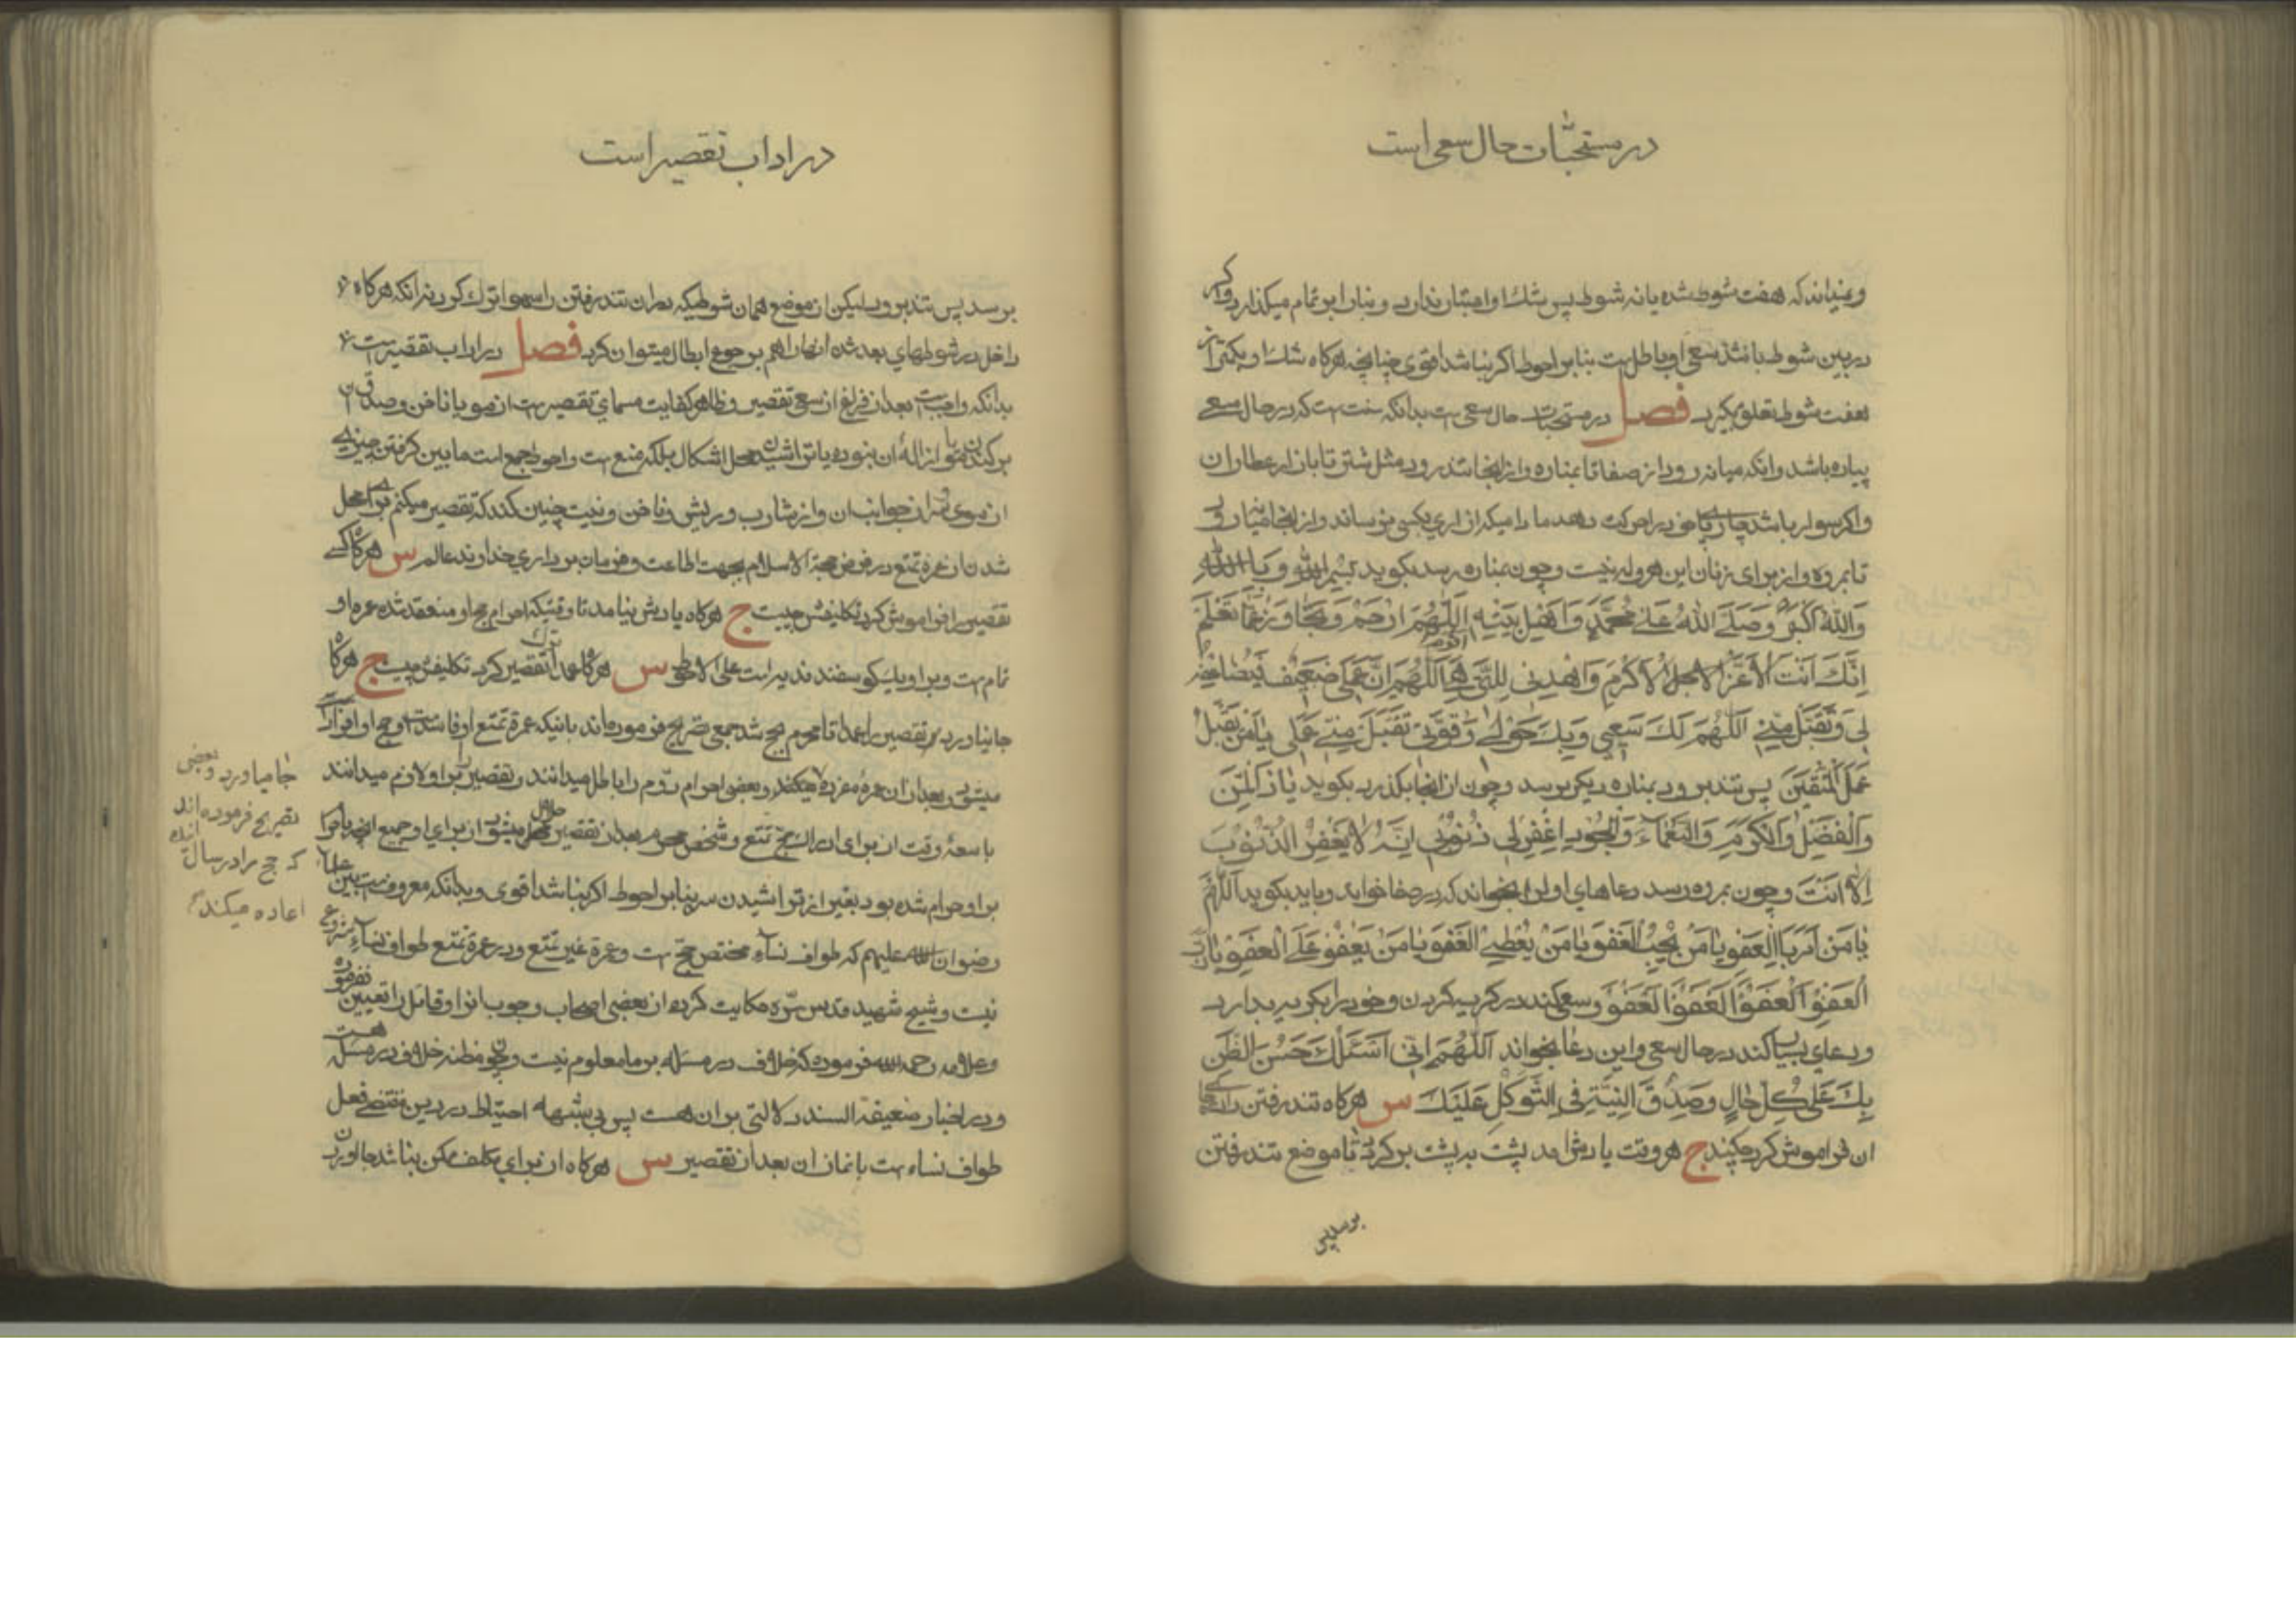 در مستحبّات حال سعی است
و نمیداند که هفت شوط شده یا نه شوط پس شک او اعتبار ندارد و بنا را بر تمام میگذارد و اگر
در بین شوط باشد سعی او باطل است بنابر احوط اگر نباشد اقوی چنانچه هرگاه شک او بکمتر از
هفت شوط تعلق بگیرد فصل در مستحبات حال سعی است بدانکه سنت است که در حال سعی
پیاده باشد و انکه میانه رود از صفا تا بمناره و از انجا تند رود مثل شتر تا بازار عطاران
و اگر سوار باشد چارپای خود را حرکت دهد مادامیکه ازاری بکسی نرساند و از انجا میانه رود
تا بمروه و از برای زنان این هروله نیست و چون بمناره رسد بگوید بِسْمِ اللهِ وَ بِاللهِ
وَاللهُ اَکْبَرُ وَصَلَّی اللهُ عَلی مُحَمَّدٍ وَاَهْلِ بَیْتِهِ اَللّهُمَّ ارْحَمْ وَتَجاوَزْ عَمّا تَعْلَمُ
اِنَّکَ اَنْتَ الاَعَزُّ الاَجَلُّ الاَکْرَمُ وَاهْدِنی لِلَّتی هِیَ اَقْوَمُ اَللّهُمَّ اِنَّ عَمَلی ضَعیفٌ فَضاعِفْهُ
لی وَتَقَبَّلْ مِنّی اَللّهُمَّ لَکَ سَعْیی وَبِکَ حَوْلی وَقُوَّتی تَقَبَّلْ مِنّی عَمَلی یا مَنْ یَقْبَلُ
عَمَلَ الْمُتَّقینَ پس تند برود بمناره دیگر برسد و چون از انجا بگذرد بگوید یا ذَا الْمَنِّ
وَالْفَضْلِ وَالْکَرَمِ وَالنَّعْمآءِ وَالْجُودِ اغْفِرْ لی ذُنُوبی اِنَّهُ لا یَغْفِرُ الذُّنُوبَ
اِلّا اَنْتَ و چون بمروه رسد دعاهای اول را بخواند که در صفا خواند و باید بگوید اَللّهُمَّ
یا مَنْ اَمَرَ بِالْعَفْوِ یا مَنْ یُحِبُّ الْعَفْوَ یا مَنْ یُعْطی الْعَفْوَ یا مَنْ یَعْفُو عَلَی الْعَفْوِ یا رَبِّ
الْعَفْوَ الْعَفْوَ الْعَفْوَ الْعَفْوَ و سعی کند در گریه کردن و خود را بگریه بدارد
و دعای بسیار کند در حال سعی و این دعا بخواند اَللّهُمَّ اِنّی اَسْئَلُکَ حُسْنَ الظَّنِّ
بِکَ عَلی کُلِّ حالٍ وَصِدْقَ النِّیَّةِ فِی التَّوَکُّلِ عَلَیْکَ س هرگاه تند رفتن را در جای
ان فراموش کرد چکند ج هر وقت یادش امد پشت به پشت برگردد تا موضع تند رفتن
برسد پس
در اداب تقصیر است
برسد پس تند برود لیکن از موضع همان شوطیکه در ان تند رفتن را سهوا ترک کرده زانکه هرگاه
داخل در شوطهای بعد شده انها را هم برجوع ابطال میتوان کرد فصل در اداب تقصیر است
بدانکه واجبست بعد از فراغ از سعی تقصیر و ظاهر کفایت مسمای تقصیر است از مو یا ناخن و صدق ان
برکندن مو یا ازاله ان بنوره یا تراشیدن محل اشکال بلکه منع است و احوط جمع است مابین گرفتن چیزی
از موی سر از جوانب ان و از شارب و ریش و ناخن و نیت چنین کند که تقصیر میکنم برای محل
شدن از عمره تمتع در فرض حجة الاسلام بجهت اطاعت و فرمان برداری خداوند عالم س هرگاه کسی
تقصیر را فراموش کرد تکلیفش چیست ج هرگاه یادش نیامد تا وقتیکه احرام حج او منعقد شده عمره او
تمام است و بر او یک گوسفند فدیه است علی الاحوط س هرگاه عمدا ترک تقصیر کرد تکلیفش چیست ج هرگاه
بجا نیاورد تقصیر را عمدا تا محرم بحج شد جمعی تصریح فرموده اند باینکه عمره تمتع او فاسد است و حج او افراد
میشود و بعد از ان عمره مفرده میکند و بعضی احرام دوم را باطل میدانند و تقصیر را بر او لازم میدانند
با سعهٔ وقت از برای ادراک حج تمتع و شخص محرم بعد از تقصیر حلال میشود از برای او جمیع انچه باحرام
بر او حرام شده بود بغیر از تراشیدن سر بنابر احوط اگر نباشد اقوی و بدانکه معروفست بین علماء
رضوان الله علیهم که طواف نساء مختص حج است و عمرة غیر تمتع و در عمرة تمتع طواف نساء مشروع
نیست و شیخ شهید قدس سرّه حکایت کرده از بعضی اصحاب وجوب انرا و قائل را تعیین نفرموده
و علامه رحمه الله فرموده که خلاف در مسئله بر ما معلوم نیست و چون مظنه خلاف در مسئله هست
و در اخبار ضعیفة السند دلالتی بر ان هست پس بی شبهه احتیاط در دین مقتضی فعل
طواف نساء است با نماز ان بعد از تقصیر س هرگاه از برای مکلف ممکن نباشد بجا اوردن
بجا میاورد و بعضی
تصریح فرموده اند
که حج را در سال اینده
اعاده میکند